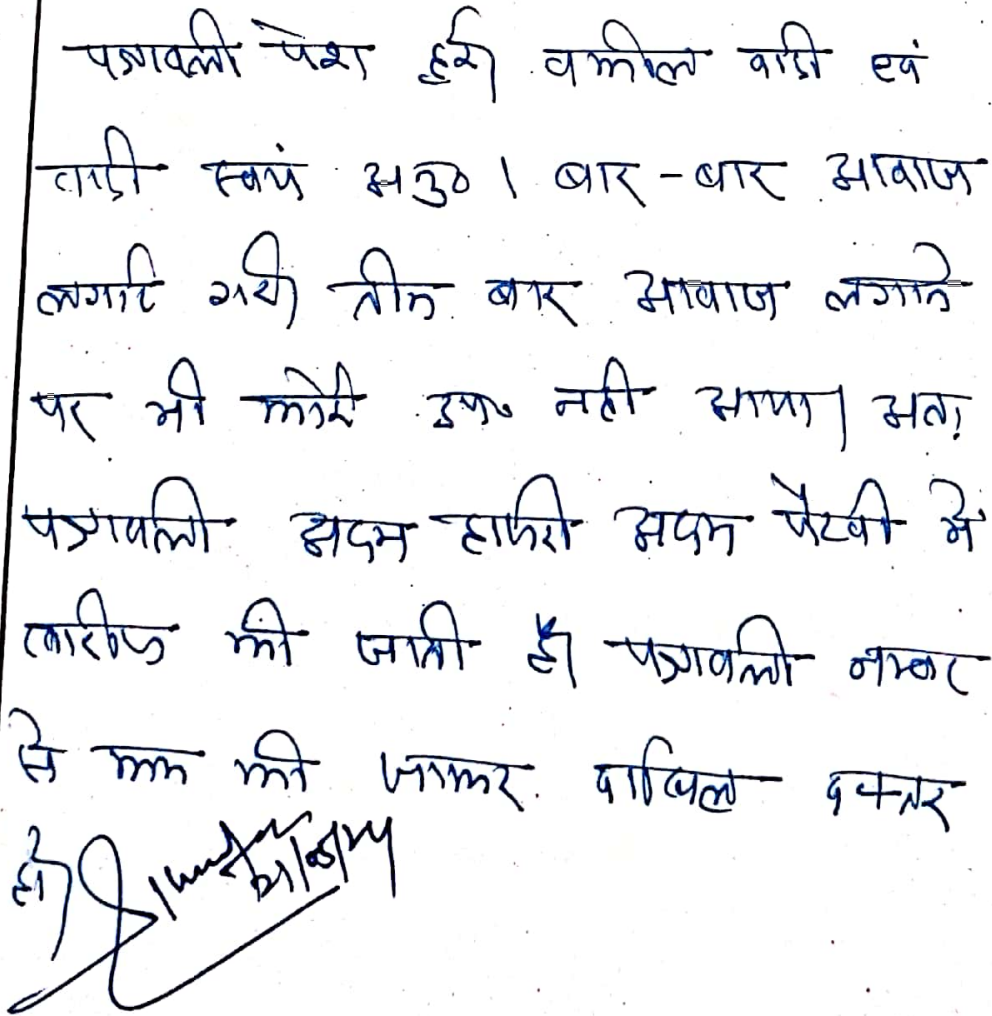 पत्रावली पेश हुई। वकील वादी एवं
वादी स्वयं अनु०। बार-बार आवाज
लगाई गयी। तीन बार आवाज लगाने
पर भी कोई उप० नही आया। अतः
पत्रावली अदम हाजरी अदम पैरवी में
खारीज की जाती है। पत्रावली नम्बर
से कम की जाकर दाखिल दफ्तर
हो।